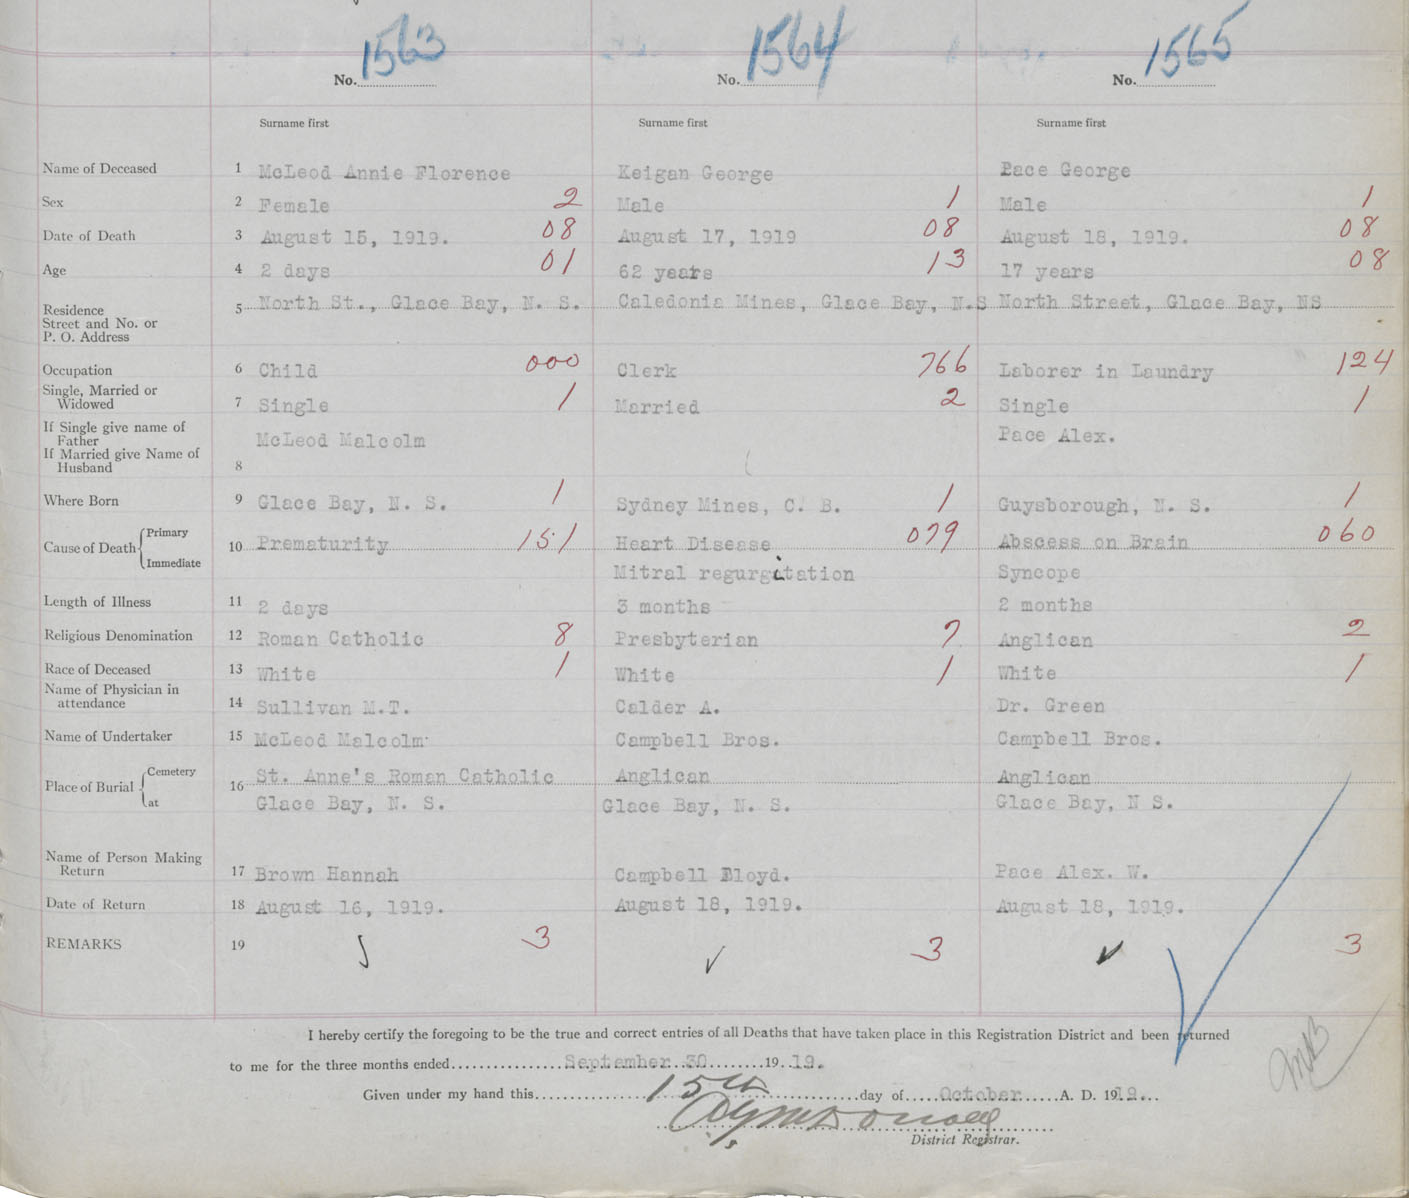 No. 1563 No. 1564 No. 1565
Surname first Surname first Surname first
Name of Deceased 1 McLeod Annie Florence Keigan George Pace George
Sex 2 Female 2 Male 1 Male 1
Date of Death 3 August 15, 1919. 08 August 17, 1919 08 August 18, 1919. 08
Age 4 2 days 01 62 years 13 17 years 08
Residence
Street and No. or
P. O. Address
5 North St., Glace Bay, N. S. Caledonia Mines, Glace Bay, N.S North Street, Glace Bay, NS
Occupation 6 Child 000 Clerk 766 Laborer in Laundry 124
Single, Married or
Widowed
7 Single 1 Married 2 Single 1
If Single give name of
Father
If Married give Name of
Husband
8 McLeod Malcolm Pace Alex.
Where Born 9 Glace Bay, N. S. 1 Sydney Mines, C. B. 1 Guysborough, N. S. 1
Cause of Death { Primary 10 Prematurity 151 Heart Disease 079 Abscess on Brain 060
Immediate Mitral regurgitation Syncope
Length of Illness 11 2 days 3 months 2 months
Religious Denomination 12 Roman Catholic 8 Presbyterian 7 Anglican 2
Race of Deceased 13 White 1 White 1 White 1
Name of Physician in
attendance
14 Sullivan M.T. Calder A. Dr. Green
Name of Undertaker 15 McLeod Malcolm Campbell Bros. Campbell Bros.
Place of Burial { Cemetery 16 St. Anne's Roman Catholic Anglican Anglican
at Glace Bay, N. S. Glace Bay, N. S. Glace Bay, N S.
Name of Person Making
Return
17 Brown Hannah Campbell Lloyd. Pace Alex. W.
Date of Return 18 August 16, 1919. August 18, 1919. August 18, 1919.
REMARKS 19 3 3 3
I hereby certify the foregoing to be the true and correct entries of all Deaths that have taken place in this Registration District and been returned
to me for the three months ended September 30 19 19.
Given under my hand this 15th day of October A. D. 1919.
District Registrar.